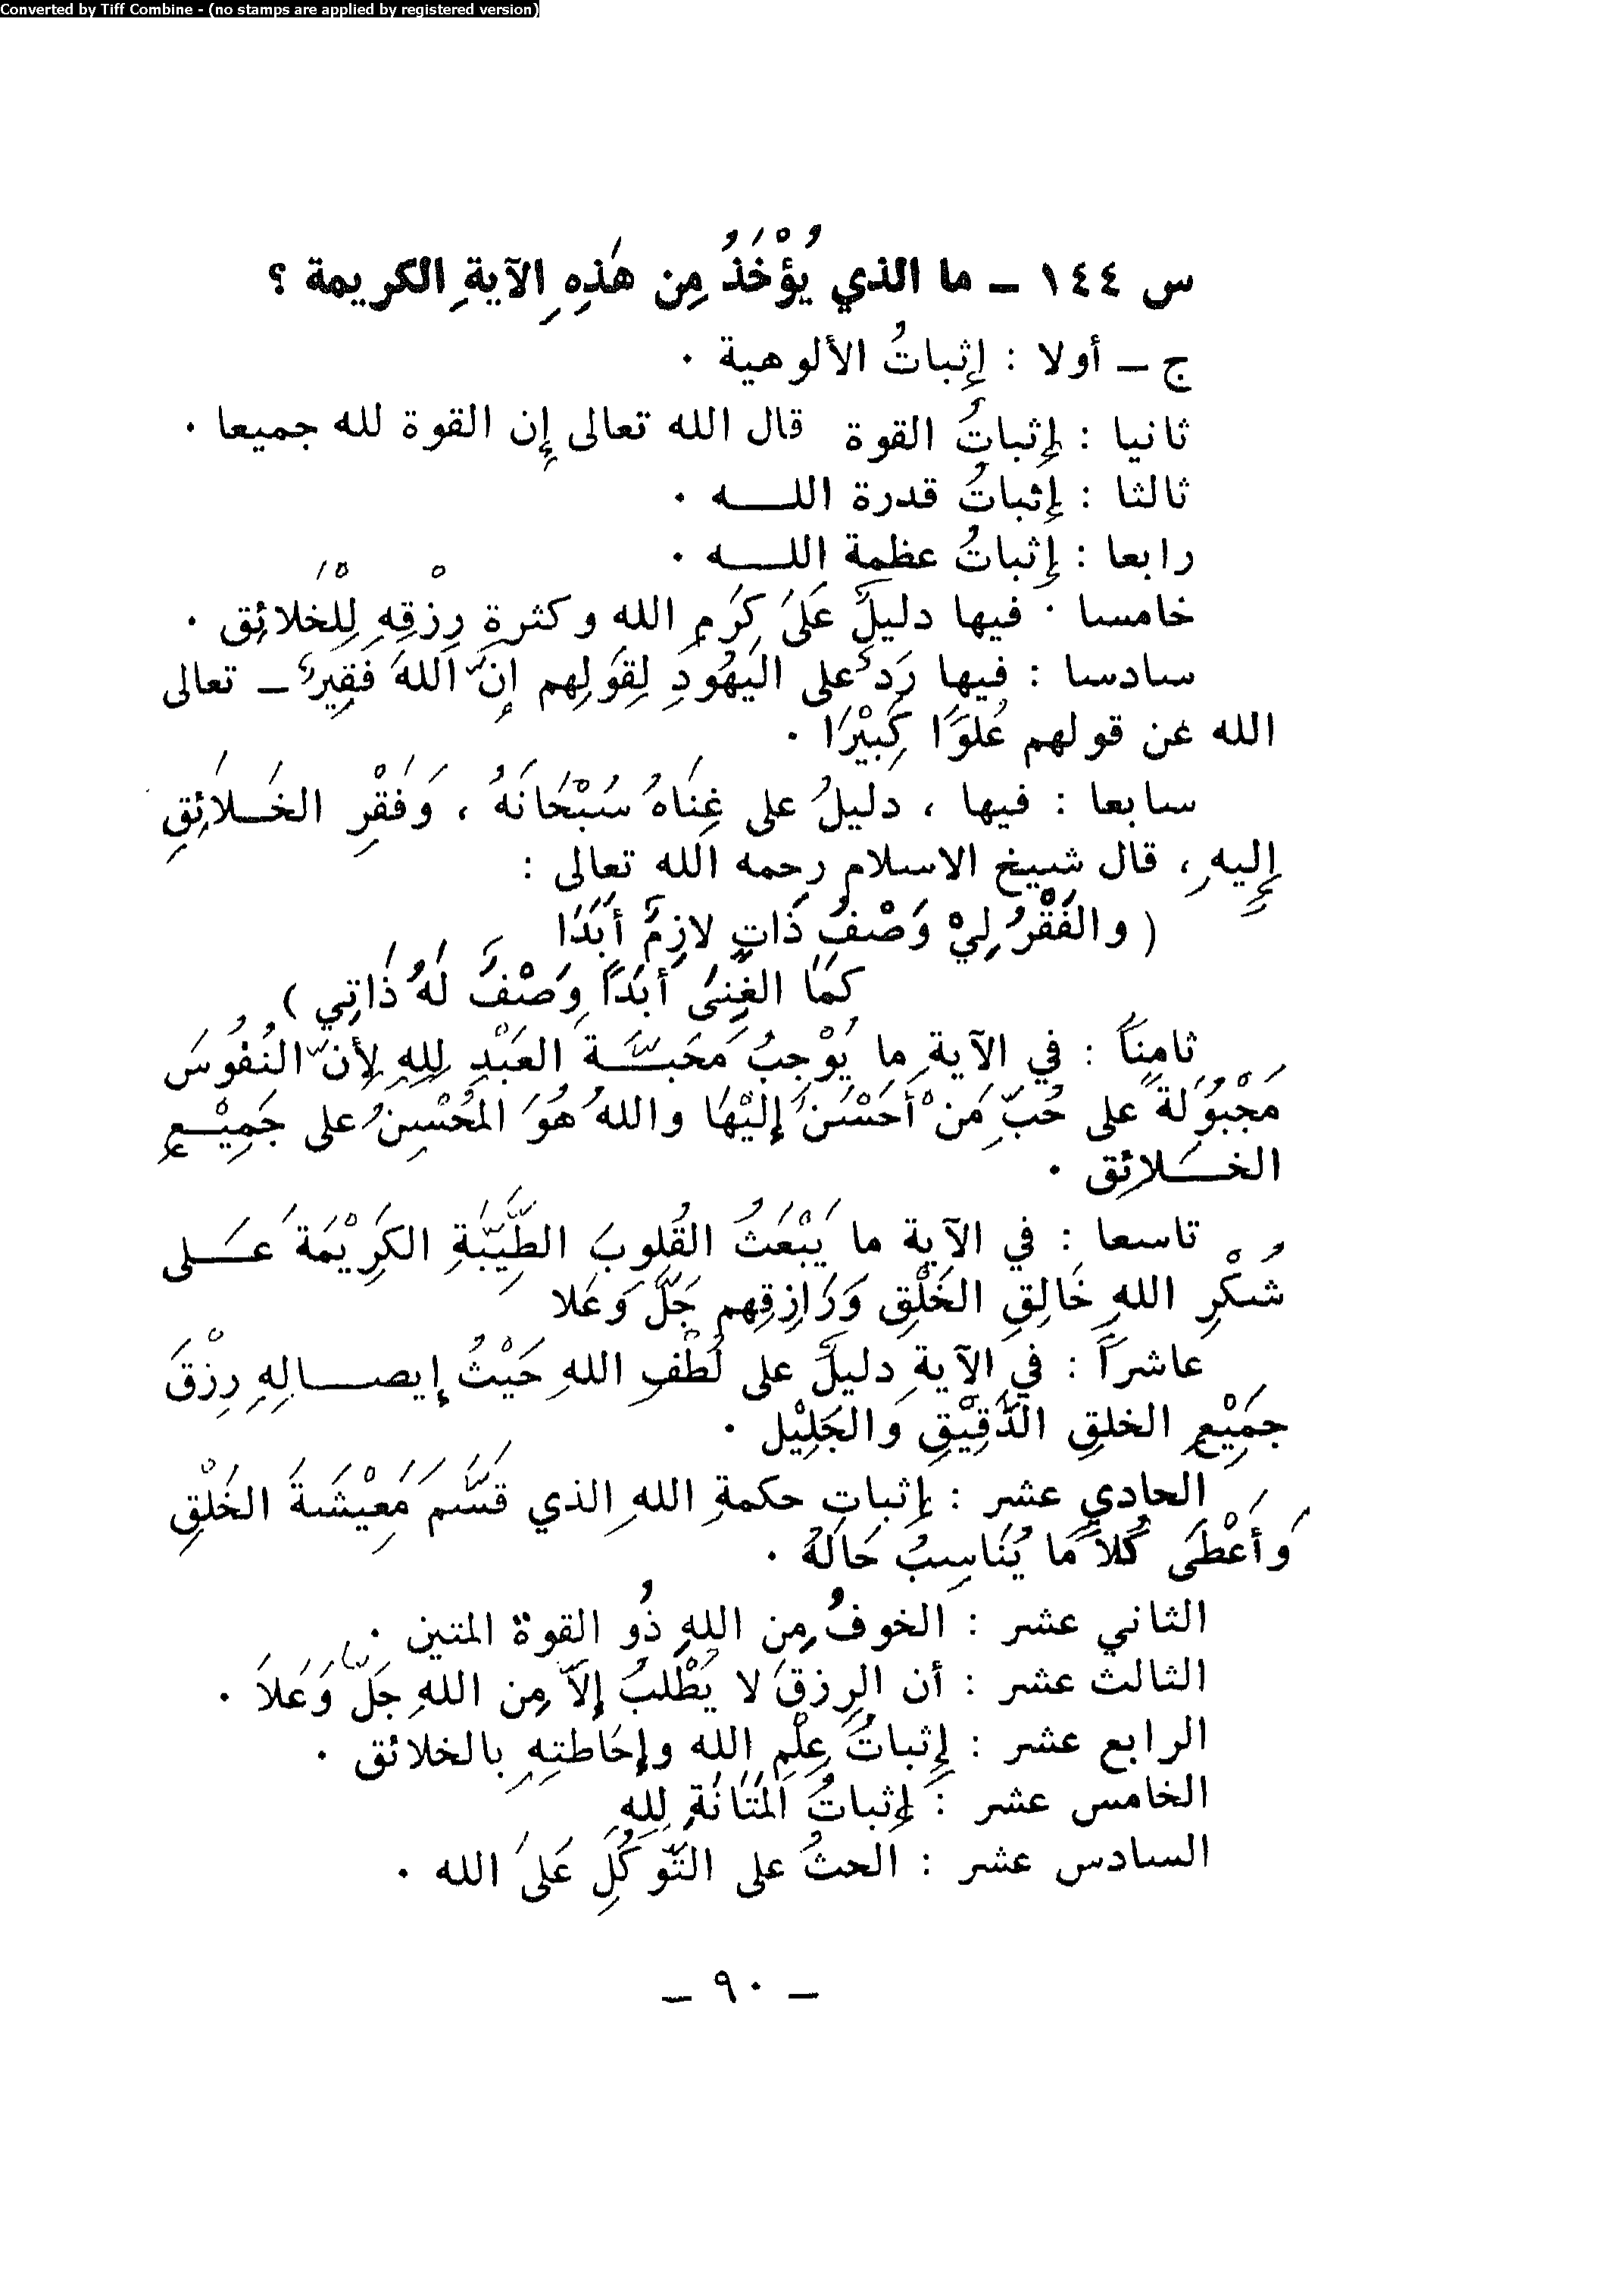 Converted by Tiff Combine - (no stamps are applied by registered version)
س ١٤٤ – ما الذي يُؤْخَذُ مِن هَذِهِ الآيةِ الكريمة ؟
ج – أولا : إِثباتُ الألوهية .
ثانيا : إِثباتُ القوة قال الله تعالى إِن القوة لله جميعا .
ثالثا : إِثباتُ قدرة اللـــه .
رابعا : إِثباتُ عظمة اللـــه .
خامسا . فيها دليلٌ عَلَى كَرَمِ الله وكثرةِ رِزْقِهِ لِلْخَلائِق .
سادسا : فيها رَدٌ على اليَهُودِ لِقَولِهم إِنَّ اللهَ فَقِيرٌ – تعالى
الله عن قولهم عُلوَّا كَبِيْرَا .
سابعا : فيها ، دليلُ على غِنَاهُ سُبْحَانَهُ ، وَفَقْرِ الخَــلائِقِ
إِليهِ ، قال شيخ الاسلام رحمه الله تعالى :
( والفَقْرُ لِيْ وَصْفُ ذَاتٍ لازِمٌ أَبَدَا
كمَا الغِنىَ أَبَدَاً وَصْفٌ لَهُ ذَاتِي )
ثامِناً : في الآيةِ ما يُوْجِبُ مَحَبَّــةَ العَبْدِ لِلهِ لِأَنَّ النُفُوسَ
مَجْبُوْلَة على حُبِّ مَنْ أَحَسْنَ إِلَيْهَا واللهُ هُوَ المُحْسِنُ على جَمِيْــعِ
الخــلائِق .
تاسعا : في الآيةِ ما يَبْعَثُ القُلوبَ الطَّيِّبَةِ الكَرِيْمَة عَــلى
شُكْرِ اللهِ خَالِقِ الخَلْقِ وَرَازِقِهم جَلَّ وَعَلا
عاشراً : في الآيةِ دليلٌ على لُطْفِ اللهِ حَيْثُ إِيصــالِهِ رِزْقَ
جَمِيْعِ الخلقِ الدَّقِيْقِ وَالجَلِيْل .
الحادي عشر : إِثباتِ حكمةِ اللهِ الذي قَسَّمَ مَعِيْشَةَ الخَلْقِ
وَأَعْطَى كُلاً مَا يُنَاسِبُ حَالَهُ .
الثاني عشر : الخوفُ مِن اللهِ ذُو القوة المتين .
الثالث عشر : أن الرِزقَ لا يُطْلَبُ إِلاَّ مِن اللهِ جَلَّ وَعَلاَ .
الرابع عشر : إِثباتُ عِلْمِ الله وإِحَاطتِهِ بِالخلائق .
الخامس عشر : إِثباتُ المَتَانَةِ لِلهِ
السادس عشر : الحثُ على التَّوكُلِ عَلىَ الله .
– ٩٠ –